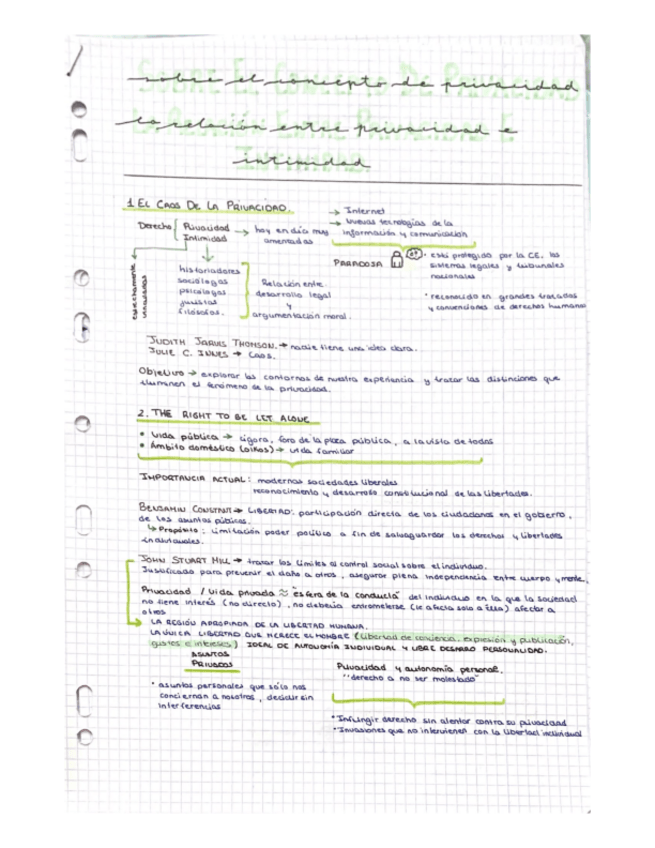 sobre el concepto de privacidad
la relación entre privacidad e
intimidad
1. EL CAOS DE LA PRIVACIDAD.
→ Internet
→ Nuevas tecnologías de la
información y comunicación
Derecho { Privacidad
Intimidad
→ hoy en día muy
amenazadas
estrechamente
vinculadas
historiadores
sociólogos
psicólogos
juristas
filósofos.
Relación entre
desarrollo legal
y
argumentación moral.
PARADOJA
· está protegido por la CE, los
sistemas legales y tribunales
nacionales
· reconocido en grandes tratados
y convenciones de derechos humanos
JUDITH JARVIS THOMSON. → nadie tiene una idea clara.
JULIE C. INNES → Caos.
Objetivo → explorar los contornos de nuestra experiencia y trazar las distinciones que
iluminen el fenómeno de la privacidad.
2. THE RIGHT TO BE LET ALONE
* Vida pública → ágora, foro de la plaza pública, a la vista de todos
* Ámbito doméstico (oikos) → vida familiar
IMPORTANCIA ACTUAL: modernas sociedades liberales
reconocimiento y desarrollo constitucional de las libertades.
BENJAMIN CONSTANT → LIBERTAD: participación directa de los ciudadanos en el gobierno,
de los asuntos públicos.
↳ Propósito: limitación poder político a fin de salvaguardar los derechos y libertades
individuales.
JOHN STUART MILL → trazar los límites al control social sobre el individuo.
Justificado para prevenir el daño a otros, asegurar plena independencia entre cuerpo y mente.
Privacidad / Vida privada ≈ "esfera de la conducta" del individuo en la que la sociedad
no tiene interés (no directo), no debería entrometerse (le afecta solo a ella) afectar a
otros
→ LA REGIÓN APROPIADA DE LA LIBERTAD HUMANA.
LA ÚNICA LIBERTAD QUE MERECE EL NOMBRE (libertad de conciencia, expresión y publicación,
gustos e intereses) IDEAL DE AUTONOMÍA INDIVIDUAL Y LIBRE DESARRO PERSONALIDAD.
ASUNTOS
PRIVADOS
· asuntos personales que solo nos
conciernan a nosotros, decidir sin
interferencias
Privacidad y autonomía personal.
"derecho a no ser molestado"
· Infringir derecho sin atentar contra su privacidad
· Invasiones que no intervienen con la libertad individual